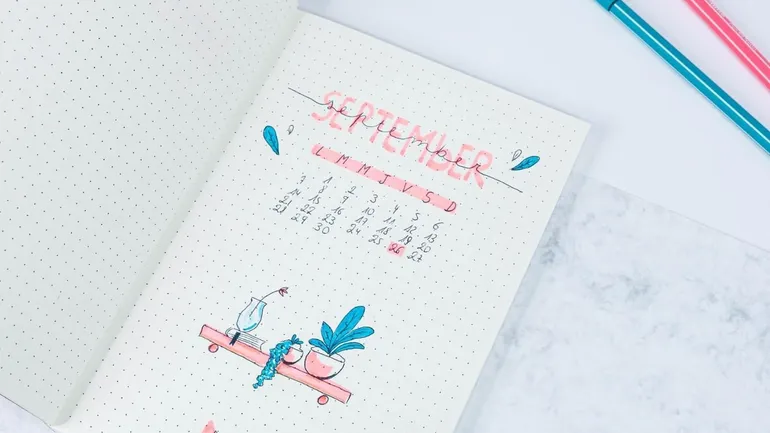 SEPTEMBER
september
L M M J V S D
1 2 3 4 5 6
7 8 9 10 11 12 13
14 15 16 17 18 19 20
21 22 23 24 25 26 27
28 29 30